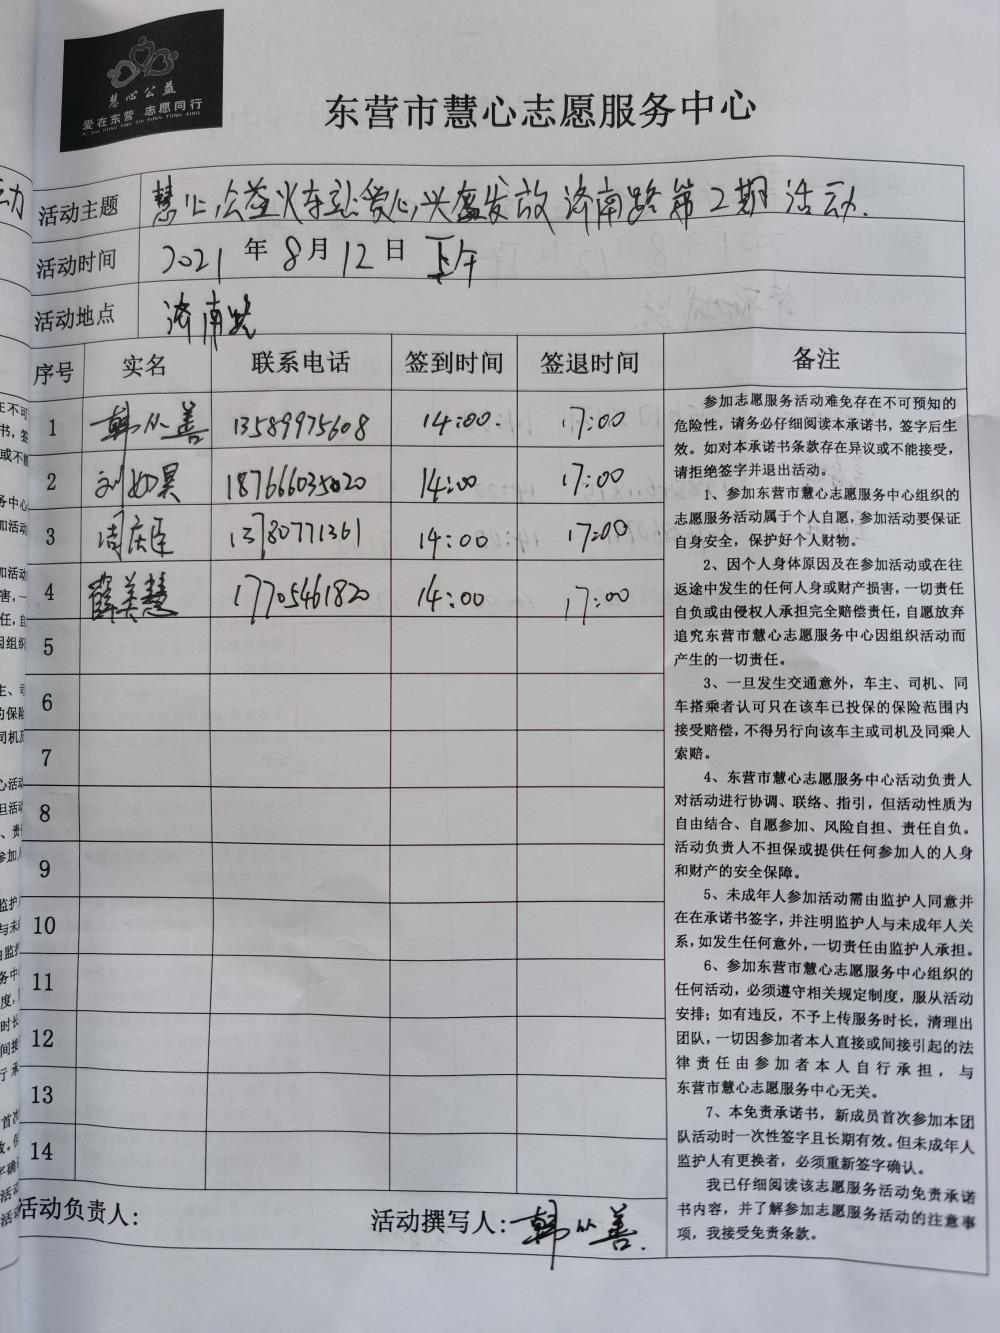 慧心公益
爱在东营 志愿同行
AI ZAI DONG YING ZHI YUAN TONG XING
东营市慧心志愿服务中心
活动主题 慧心公益火车站爱心发放济南路第2期活动.
活动时间 2021年8月12日 下午
活动地点 济南路
序号 实名 联系电话 签到时间 签退时间 备注
1 韩从善 13589975608 14:00. 17:00
2 刘如昊 187666035020 14:00 17:00
3 周庆臣 13780771361 14:00 17:00
4 薛美慧 17705461820 14:00 17:00
5
6
7
8
9
10
11
12
13
14
参加志愿服务活动难免存在不可预知的
危险性，请务必仔细阅读本承诺书，签字后生
效。如对本承诺书条款存在异议或不能接受，
请拒绝签字并退出活动。
1、参加东营市慧心志愿服务中心组织的
志愿服务活动属于个人自愿，参加活动要保证
自身安全，保护好个人财物。
2、因个人身体原因及在参加活动或在往
返途中发生的任何人身或财产损害，一切责任
自负或由侵权人承担完全赔偿责任，自愿放弃
追究东营市慧心志愿服务中心因组织活动而
产生的一切责任。
3、一旦发生交通意外，车主、司机、同
车搭乘者认可只在该车已投保的保险范围内
接受赔偿，不得另行向该车主或司机及同乘人
索赔。
4、东营市慧心志愿服务中心活动负责人
对活动进行协调、联络、指引，但活动性质为
自由结合、自愿参加、风险自担、责任自负。
活动负责人不担保或提供任何参加人的人身
和财产的安全保障。
5、未成年人参加活动需由监护人同意并
在在承诺书签字，并注明监护人与未成年人关
系，如发生任何意外，一切责任由监护人承担。
6、参加东营市慧心志愿服务中心组织的
任何活动，必须遵守相关规定制度，服从活动
安排；如有违反，不予上传服务时长，清理出
团队，一切因参加者本人直接或间接引起的法
律责任由参加者本人自行承担，与
东营市慧心志愿服务中心无关。
7、本免责承诺书，新成员首次参加本团
队活动时一次性签字且长期有效。但未成年人
监护人有更换者，必须重新签字确认。
我已仔细阅读该志愿服务活动免责承诺
书内容，并了解参加志愿服务活动的注意事
项，我接受免责条款。
活动负责人： 活动撰写人：韩从善.